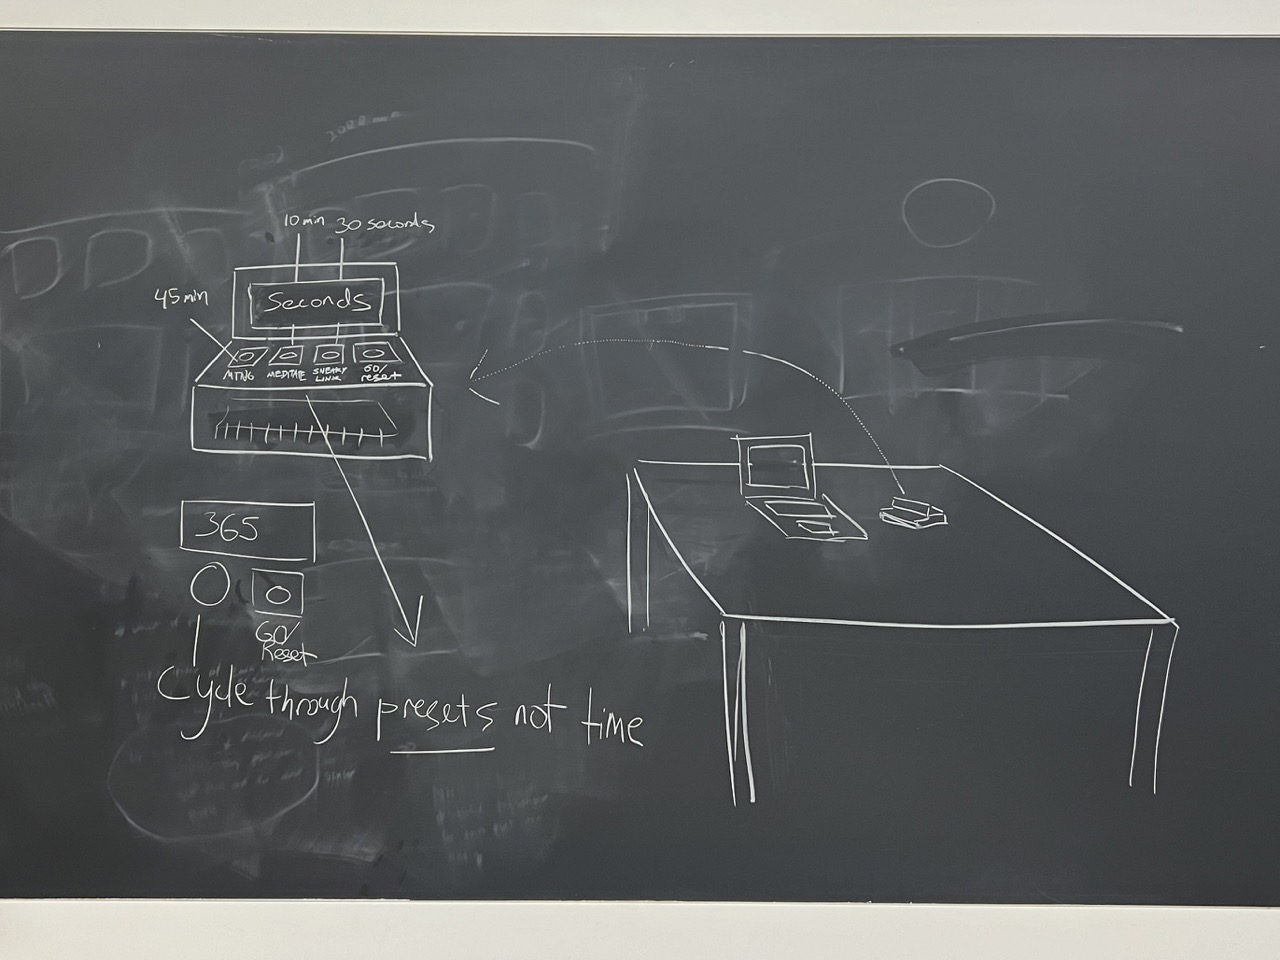 10 min 30 seconds
45 min
Seconds
MTNG MEDITATE SNEAKY LINK GO/ reset
365
GO/
Reset
Cycle through presets not time